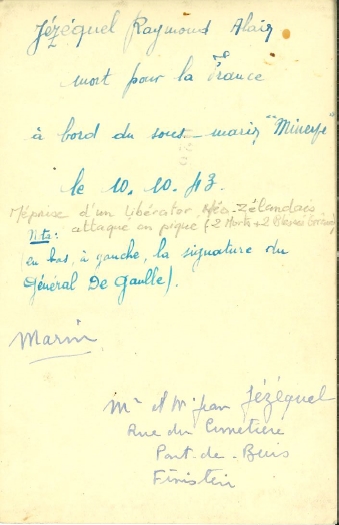 Jézéquel Raymond Alain
mort pour la France
à bord du sous-marin "Minerve"
le 10.10.43.
Méprise d'un Libérator Néo-Zélandais
attaque en piqué (2 Morts + 2 Blessés
Nta:
(en bas, à gauche, la signature du
Général De Gaulle).
Marin
Mr et Me Jean Jézéquel
Rue du Cimetière
Pont-de-Buis
Finistère